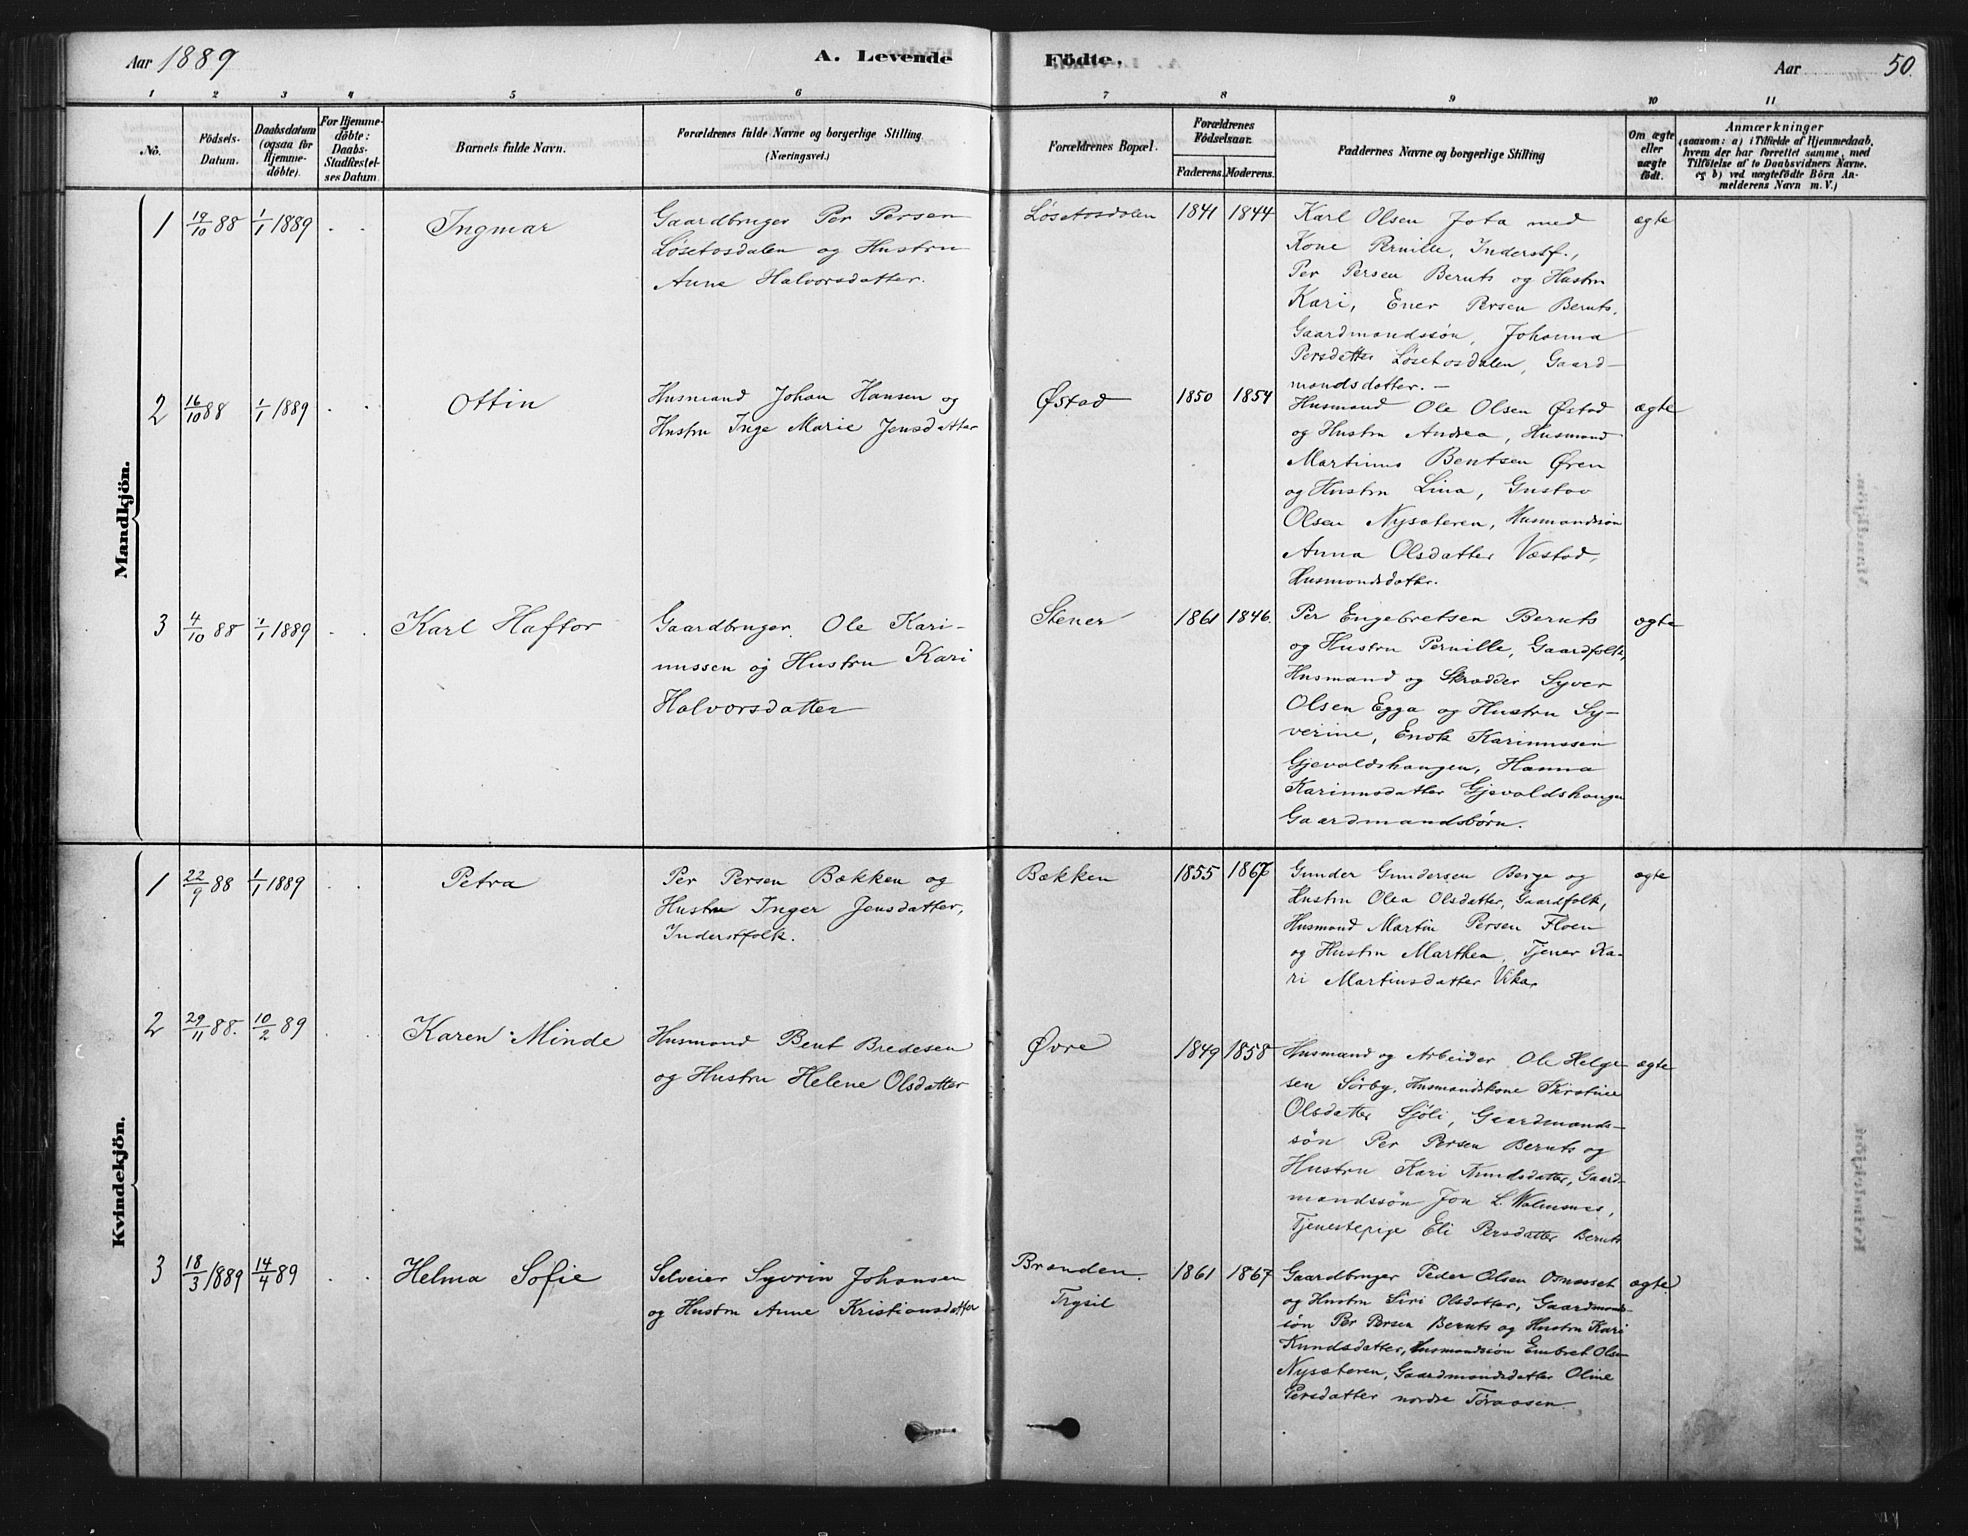 Aar 1889
A. Levende
Födte.
Aar
50.
1 2 3 4 5 6 7 8 9 10 11
No.
Födsels-
Datum.
Daabsdatum
(ogsaa for
Hjemme-
döbte).
For Hjemme-
döbte:
Daabs-
Stadfæstel-
ses Datum.
Barnets fulde Navn.
Forældrenes fulde Navne og borgerlige Stilling
(Næringsvei.)
Forældrenes Bopæl.
Forældrenes
Födselsaar.
Faderens. Moderens.
Faddernes Navne og borgerlige Stilling
Om ægte
eller
uægte
födt.
Anmærkninger
(saasom: a) i Tilfælde af Hjemmedaab,
hvem der har forrettet samme, med
Tilföielse af to Daabsvidners Navne.
og b) ved uægtefödte Börn An-
melderens Navn m. V.)
Mandkjön.
1
19/10 88
1/1 1889
Ingmar
Gaardbruger Per Persen
Løsetosdalen og Hustru
Anne Halvorsdatter.
Løsetosdalen
1841 1844
Karl Olsen Jota med
Kone Pernille, Inderstf.,
Per Persen Beruts og Hustru
Kari, Ener Persen Beruts,
Gaardmandssøn, Johanna
Persdatter Løsetosdalen, Gaard-
mandsdatter. -
ægte
2
16/10 88
1/1 1889
Ottin
Husmand Johan Hansen og
Hustru Inge Marie Jensdatter
Østad
1850 1854
Husmand Ole Olsen Østad
og Hustru Andrea, Husmand
Martinus Bentsen Øren
og Hustru Lina, Gustav
Olsen Nysæteren, Husmandssøn
Anna Olsdatter Væstad,
Husmandsdatter.
ægte
3
4/10 88
1/1 1889
Karl Haftor
Gaardbruger. Ole Kari-
nussen og Hustru Kari
Halvorsdatter
Stener
1861 1846.
Per Engebretsen Beruts
og Hustru Pernille, Gaardfolk,
Husmand og Skrædder Syver
Olsen Egga og Hustru Sy-
verine, Enok Karinussen
Gjevaldshaugen, Hanna
Karinusdatter Gjevaldshaugen
Gaardmandsbørn.
ægte
Kvindekjön.
1
22/9 88
1/1 1889
Petra
Per Persen Bækken og
Hustru Inger Jensdatter,
Inderstfolk.
Bækken
1855 1867
Gunder Gundersen Berge og
Hustru Olea Olsdatter, Gaardfolk,
Husmand Martin Persen Floen
og Hustru Marthea, Tjener Ka-
ri Martinsdatter Vika,
ægte
2
29/11 88.
10/2 89
Karen Minde
Husmand Bent Bredesen
og Hustru Helene Olsdatter
Øvre
1849 1858
Husmand og Arbeider Ole Helge
sen Sörby, Husmandskone Kirstine
Olsdatter Sjöli, Gaardmands-
søn Per Persen Beruts og
Hustru Kari Knudsdatter, Gaard
mandssøn Jon L.
Tjenestepige Eli Persdatter Beruts
ægte
3
18/3 1889
14/4 89
Helma Sofie
Selveier Syvrin Johansen
og Hustru Anne Kristiansdatter
Branden.
Trysil
1861 1867
Gaardbruger Peder Olsen Osneset
og Hustru Siri Olsdatter, Gaardmands-
søn Per Persen Beruts og Hustru Kari
Knudsdatter, Husmandssøn Embret Olsen
Nysæteren, Gaardmandsdatter Oline
Persdatter nordre Töraasen.
ægte